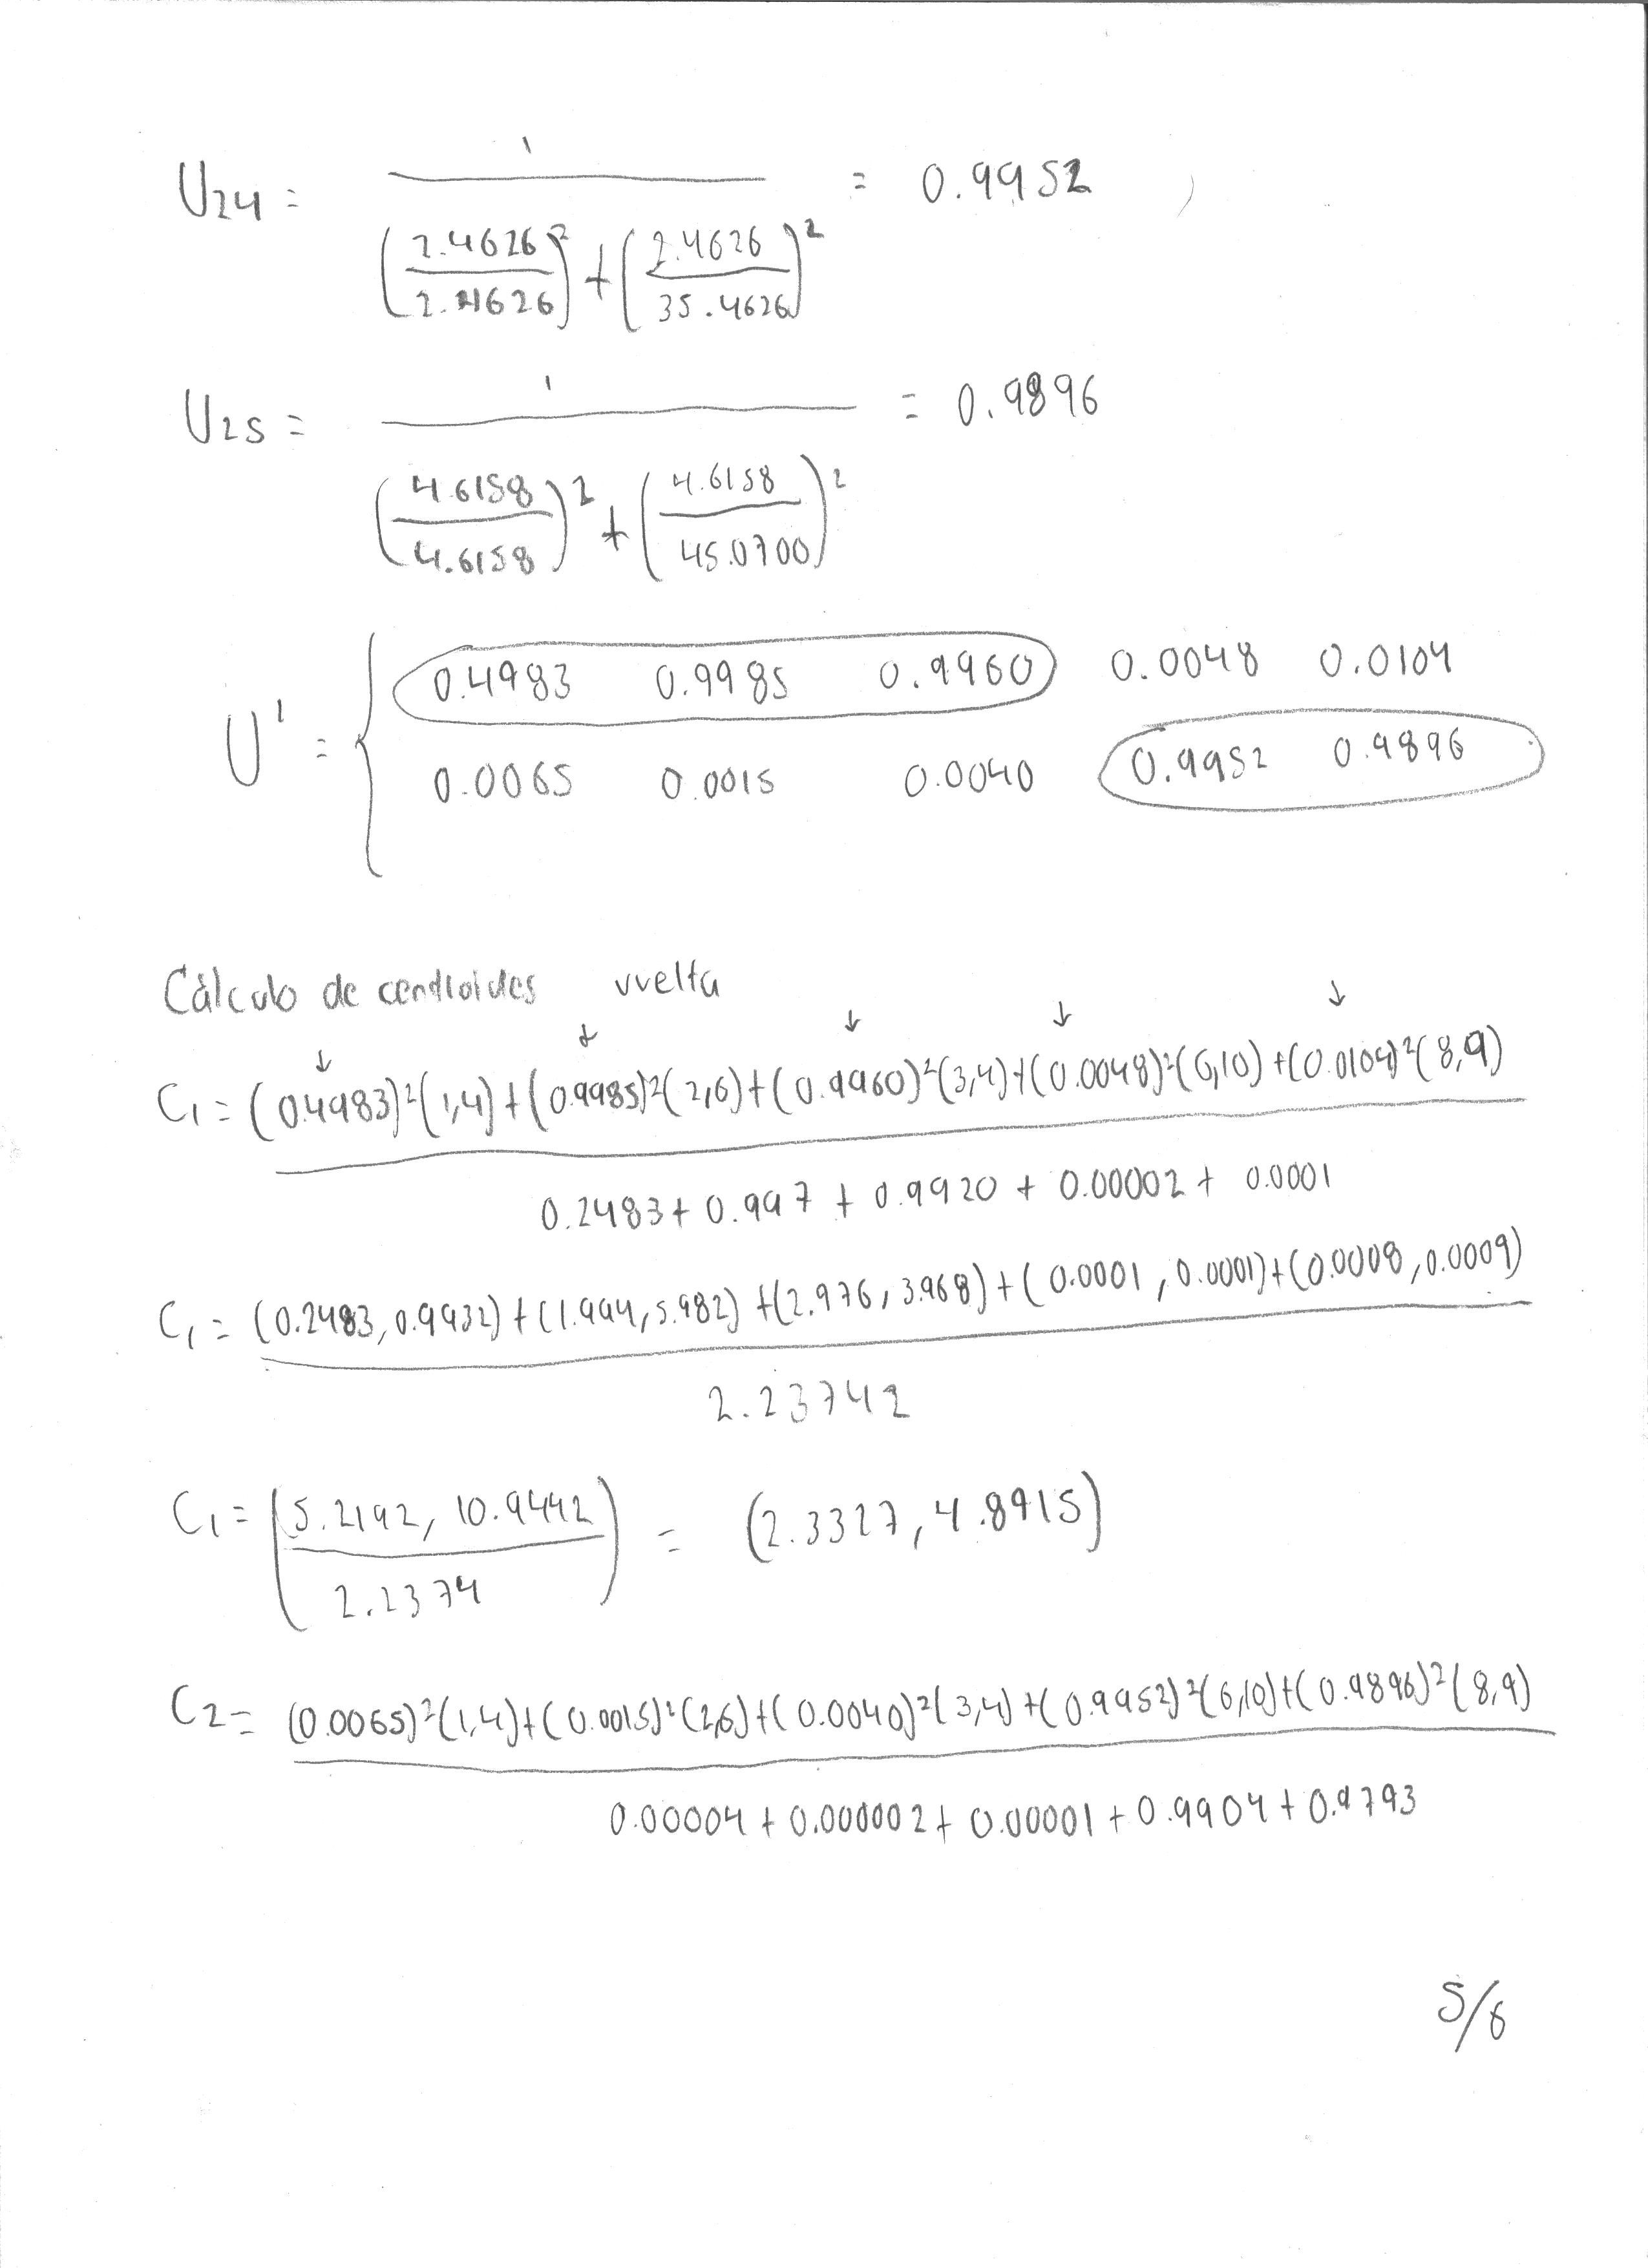 U24 = 1 / ((2.4626/2.4626)² + (2.4626/35.4626)²) = 0.9952
U25 = 1 / ((4.6158/4.6158)² + (4.6158/45.0700)²) = 0.9896
U' = { 0.4983 0.9985 0.9960 0.0048 0.0104
0.0065 0.0015 0.0040 0.9952 0.9896
Cálculo de centroides vuelta
↓ ↓ ↓ ↓ ↓
C1 = (0.4983)²(1,4) + (0.9985)²(2,6) + (0.9960)²(3,4) + (0.0048)²(6,10) + (0.0104)²(8,9)
0.2483 + 0.997 + 0.9920 + 0.00002 + 0.0001
C1 = (0.2483, 0.9932) + (1.994, 5.982) + (2.976, 3.968) + (0.0001, 0.0001) + (0.0008, 0.0009)
2.23742
C1 = (5.2192, 10.9442 / 2.2374) = (2.3327, 4.8915)
C2 = (0.0065)²(1,4) + (0.0015)²(2,6) + (0.0040)²(3,4) + (0.9952)²(6,10) + (0.9896)²(8,9)
0.00004 + 0.000002 + 0.00001 + 0.9904 + 0.9793
5/6